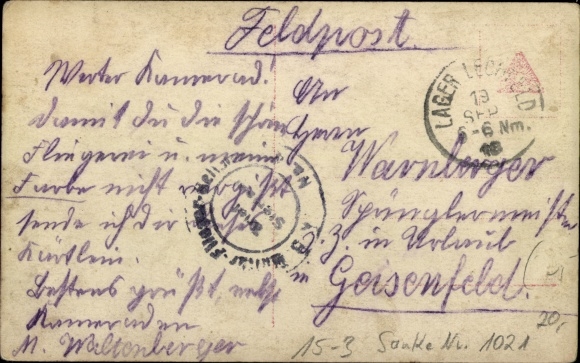 Feldpost.
Werter Kamerad!
damit du die schöne
Fliegerei u. meine
Farbe nicht vergißt
sende ich dir
Kärtlein.
Bestens grüßt,
Kameraden
M. Waltenberger
An
Herrn
Warnberger
Spünglermeister
z. Z. in Urlaub
in Geisenfeld.
LAGER LECHFELD
19
SEP
5-6 Nm.
18
20,-
15-3 Sanke Nr. 1021